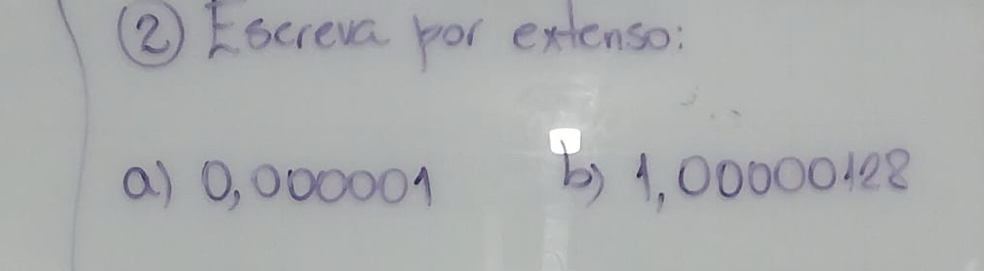 ② Escreva por extenso:
a) 0,000001 b) 1,00000128